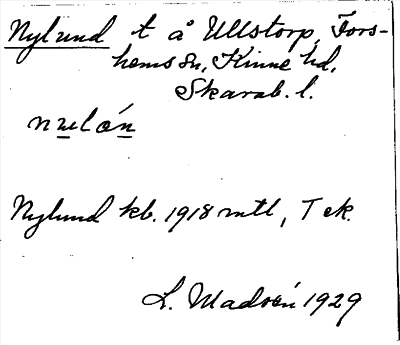 Nylund t å Ullstorp, Fors-
hems sn, Kinne hd,
Skarab. l.
Nylund kb. 1918 mtl, T ek.
L. Madsén 1929